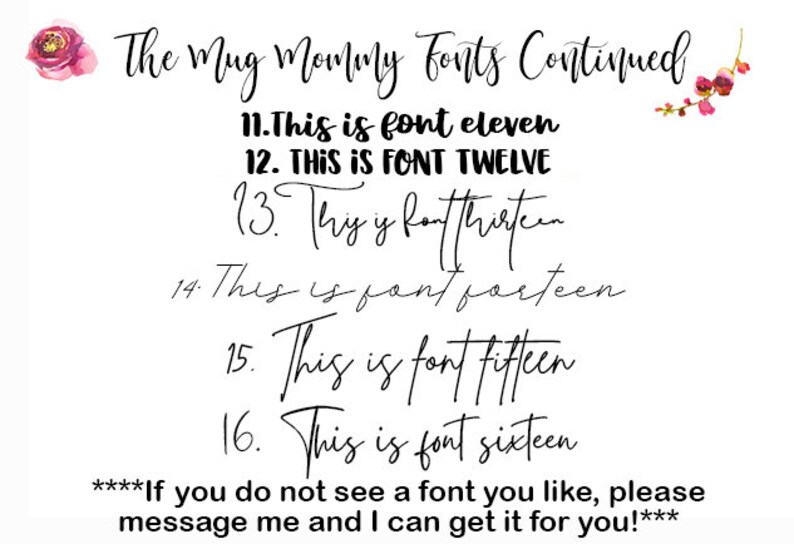 The Mug Mommy Fonts Continued
11.This is font eleven
12. THiS iS FONT TWELVE
13. This is font thirteen
14. This is font forteen
15. This is font fifteen
16. This is font sixteen
****If you do not see a font you like, please
message me and I can get it for you!***